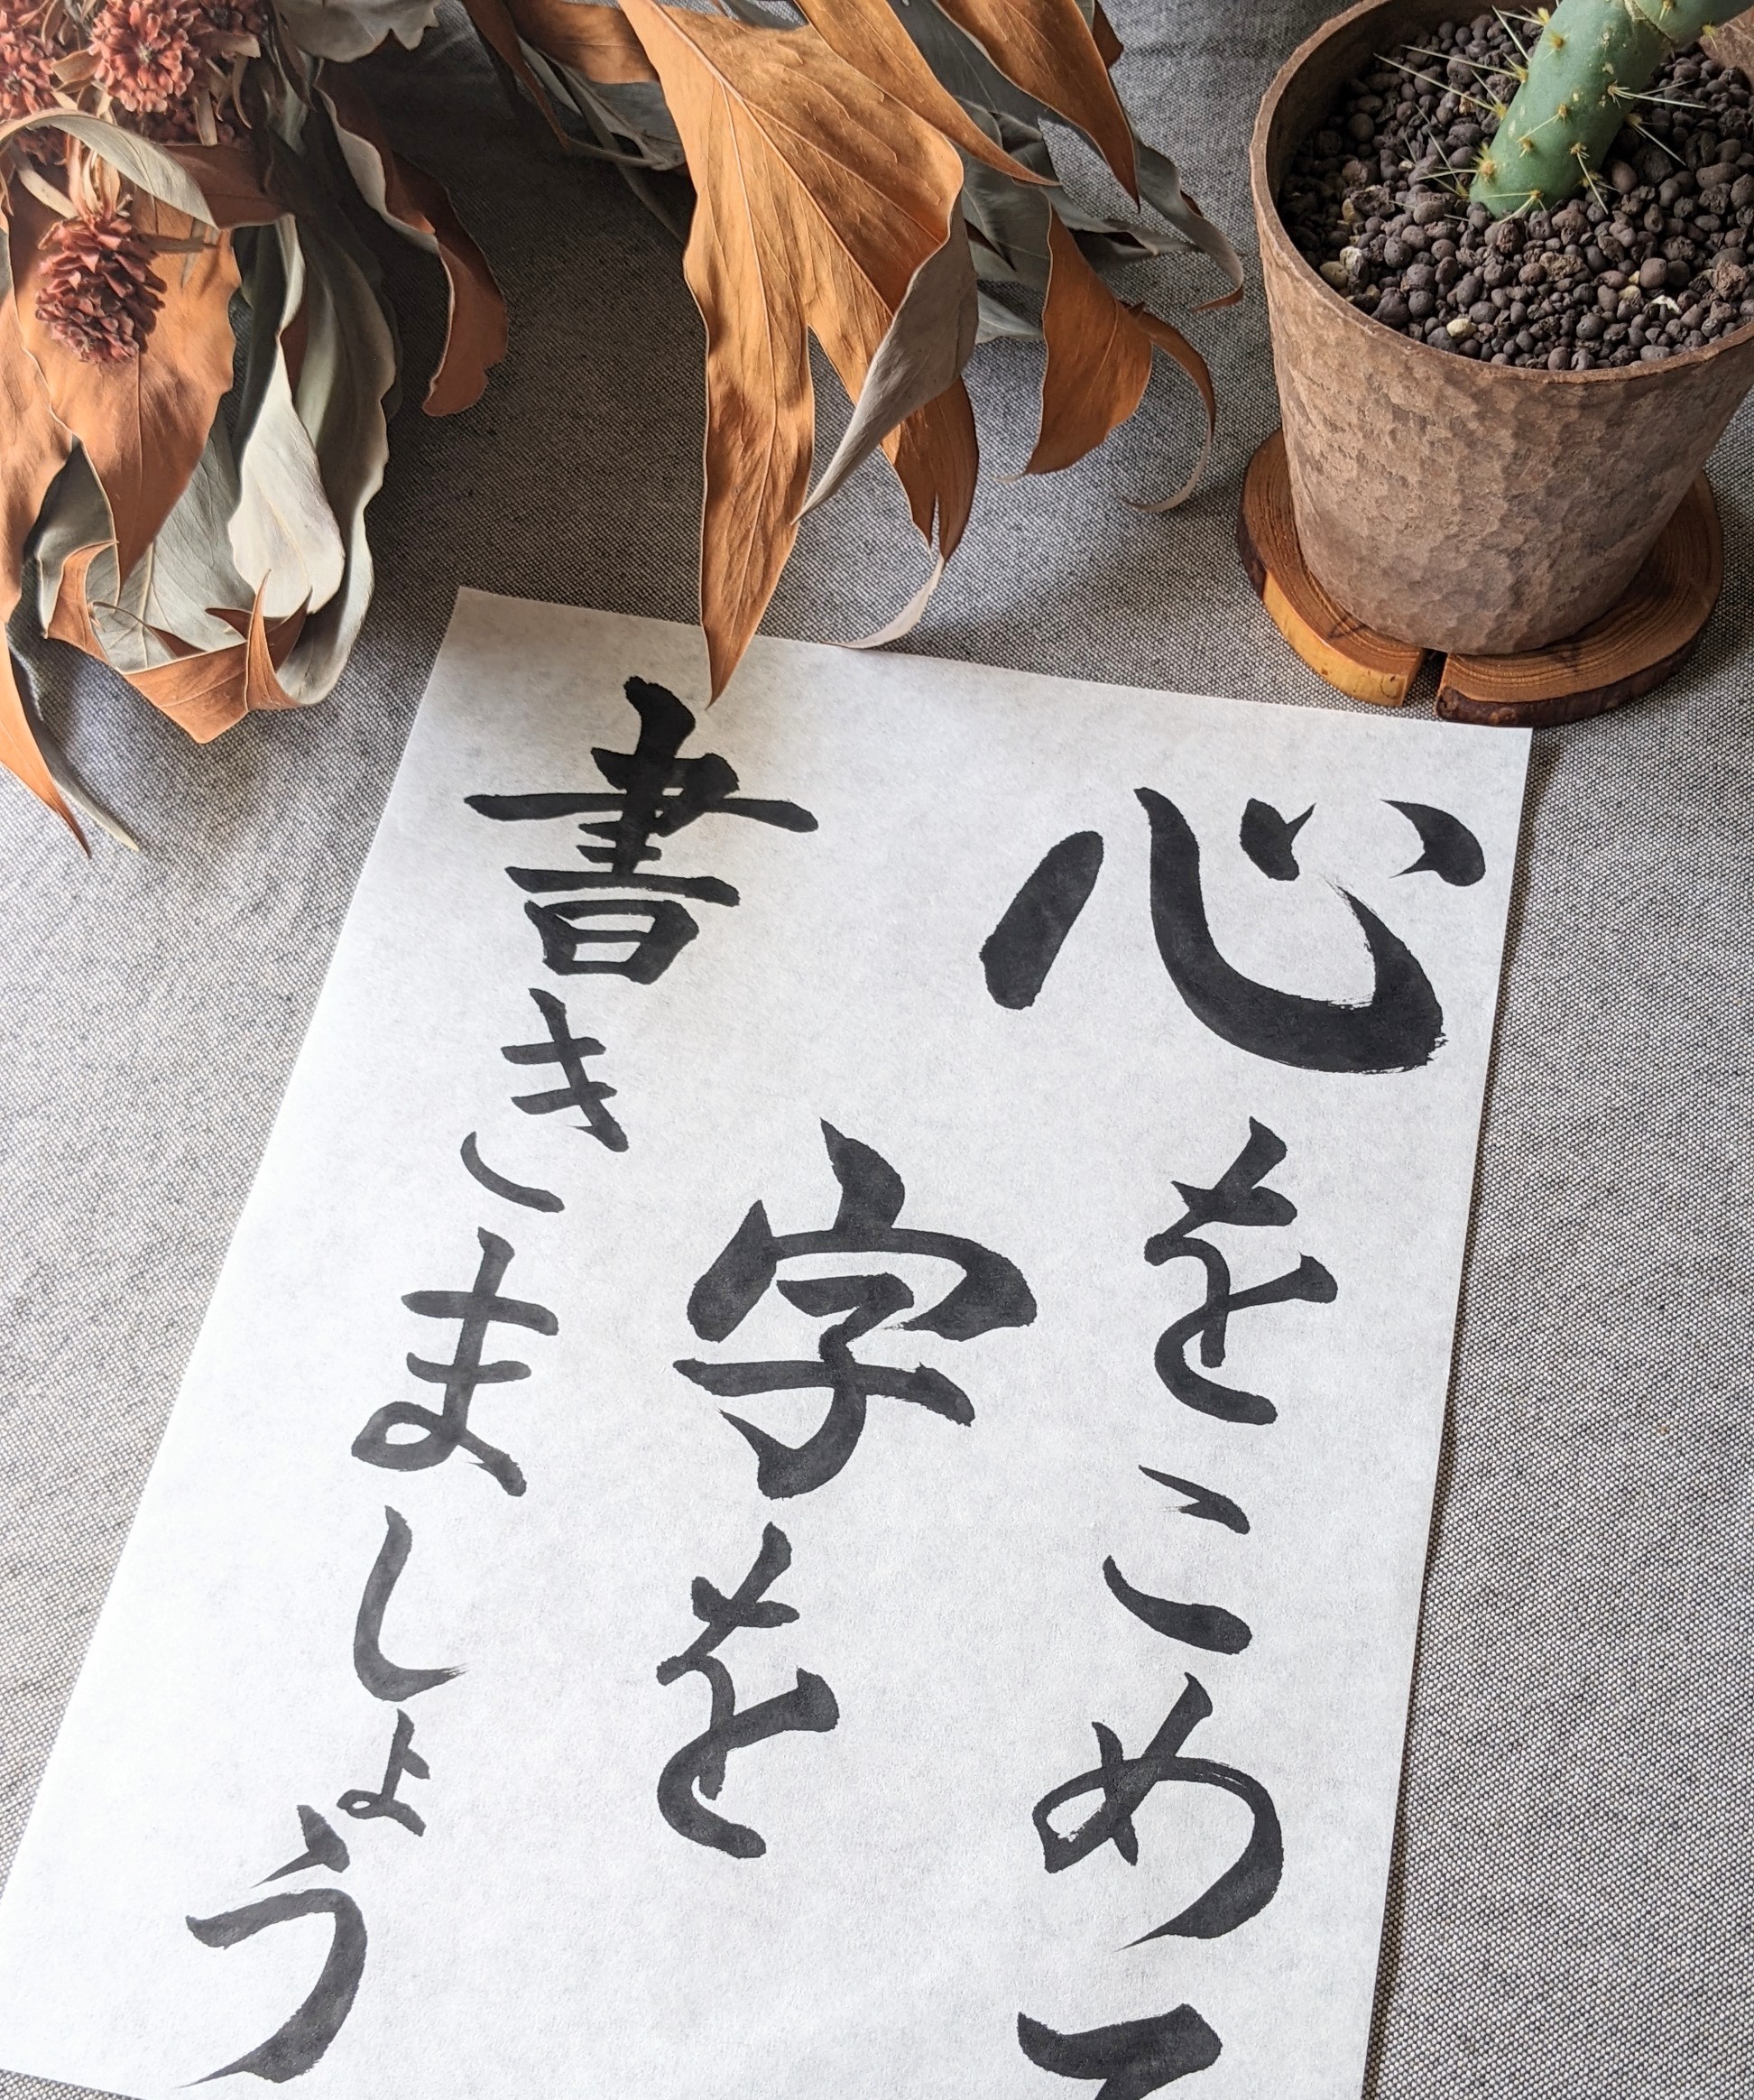 心をこめて
字を
書きましょう